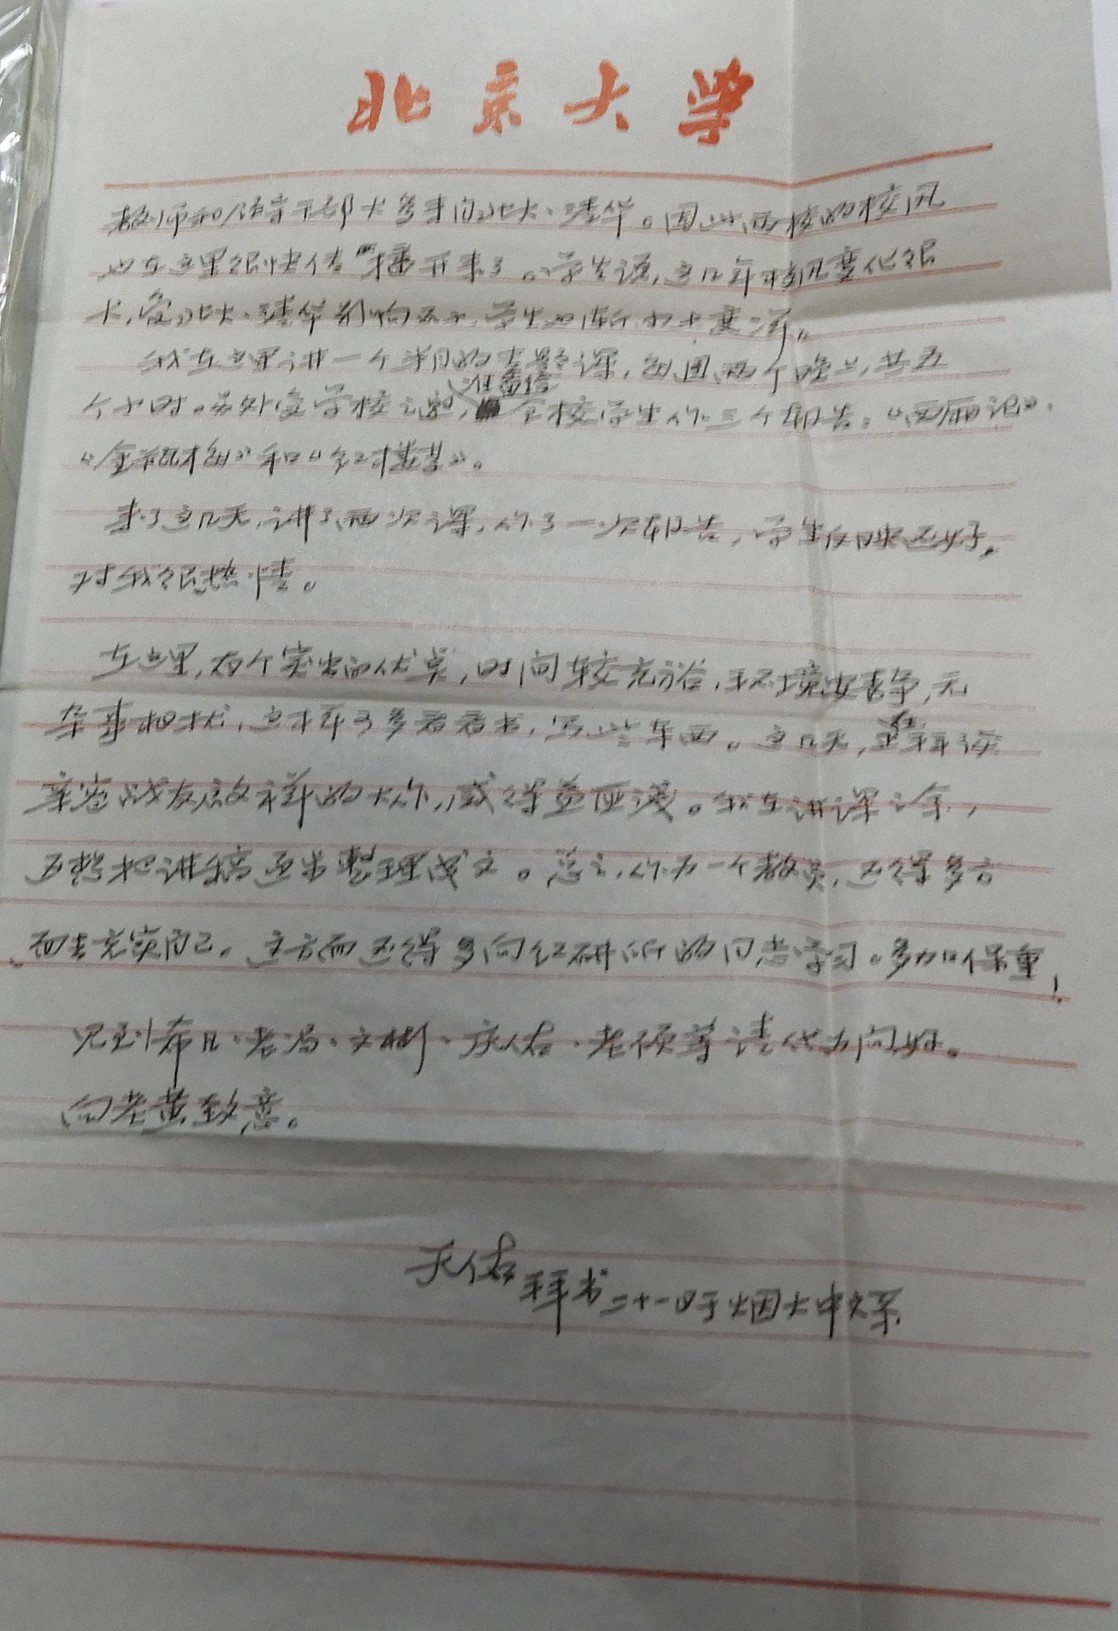 北京大学
教师和领导干部大多来自北大、清华。因此,两校的校风
也在这里很快传播开来了。学生说,这几年校风变化很
大,受北大、清华影响不小,学生也
我在这里讲一个半月的专题课,每周两个晚上,共五
个小时。另外受学校之邀,准备给全校学生作三个报告:《西厢记》、
《金瓶梅》和《红楼梦》。
来了这几天,讲了两次课,作了一次报告,学生反映还好,
对我很热情。
在这里,有个突出的优点,时间较充裕,环境安静,无
杂事相扰,这样可多看看书,写些东西。这几天,正在拜读
亲密战友启祥的大作,感得益匪浅。我在讲课之余,
还想把讲稿逐步整理成文。总之,作为一个教员,还得多方
面去充实自己。这方面还得多向红研所的同志学习。多加保重!
见到希凡、老冯、文彬、庆佑、老顾等请代为问好。
向老黄致意。
天佑拜书 二十一日于烟大中文系